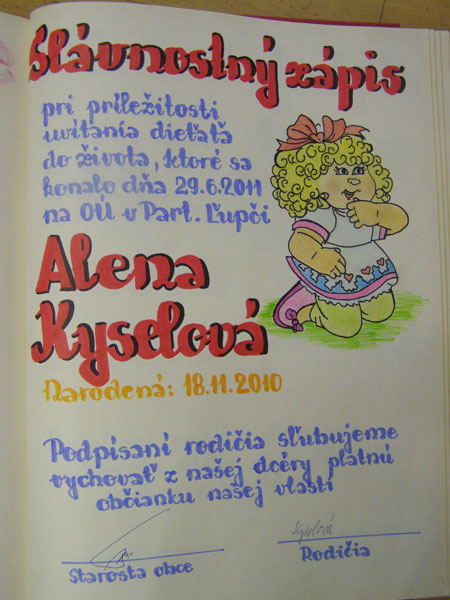 Slávnostný zápis
pri príležitosti
uvítania dieťaťa
do života, ktoré sa
konalo dňa 29.6.2011
na OÚ v Part. Ľupči
Alena
Kyselová
Narodená: 18.11.2010
Podpísaní rodičia sľubujeme
vychovať z našej dcéry platnú
občianku našej vlasti
Kyselová
Starosta obce
Rodičia